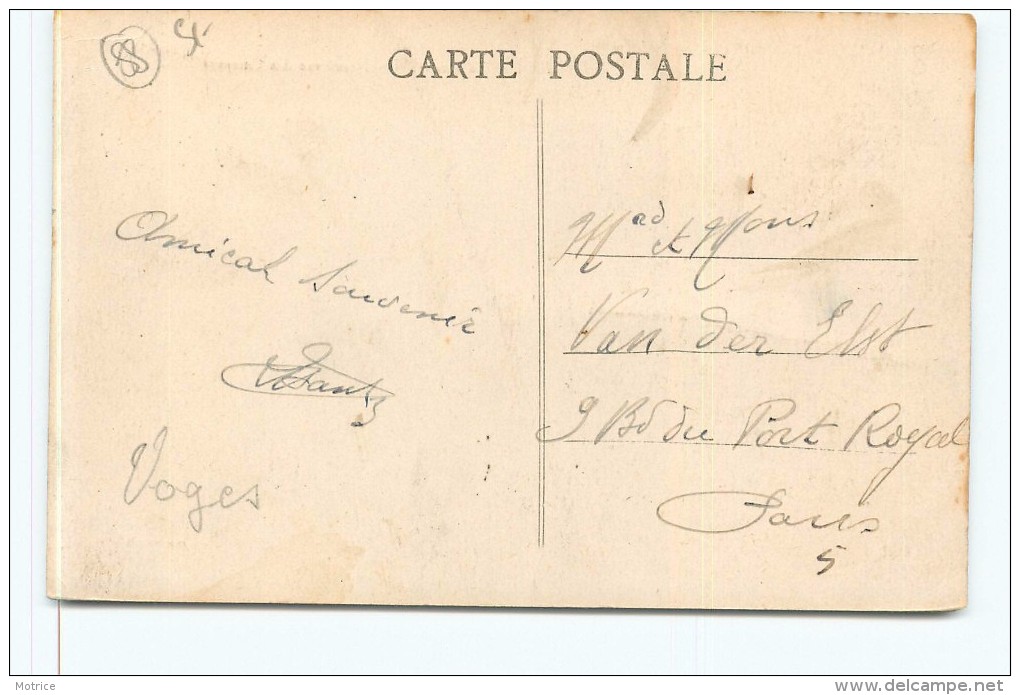 CARTE POSTALE
Amical Souvenir
Voges
Mad et Mons
Van der Elst
9 Bd du Port Royal
Paris
5
Motrice
delcampe.net